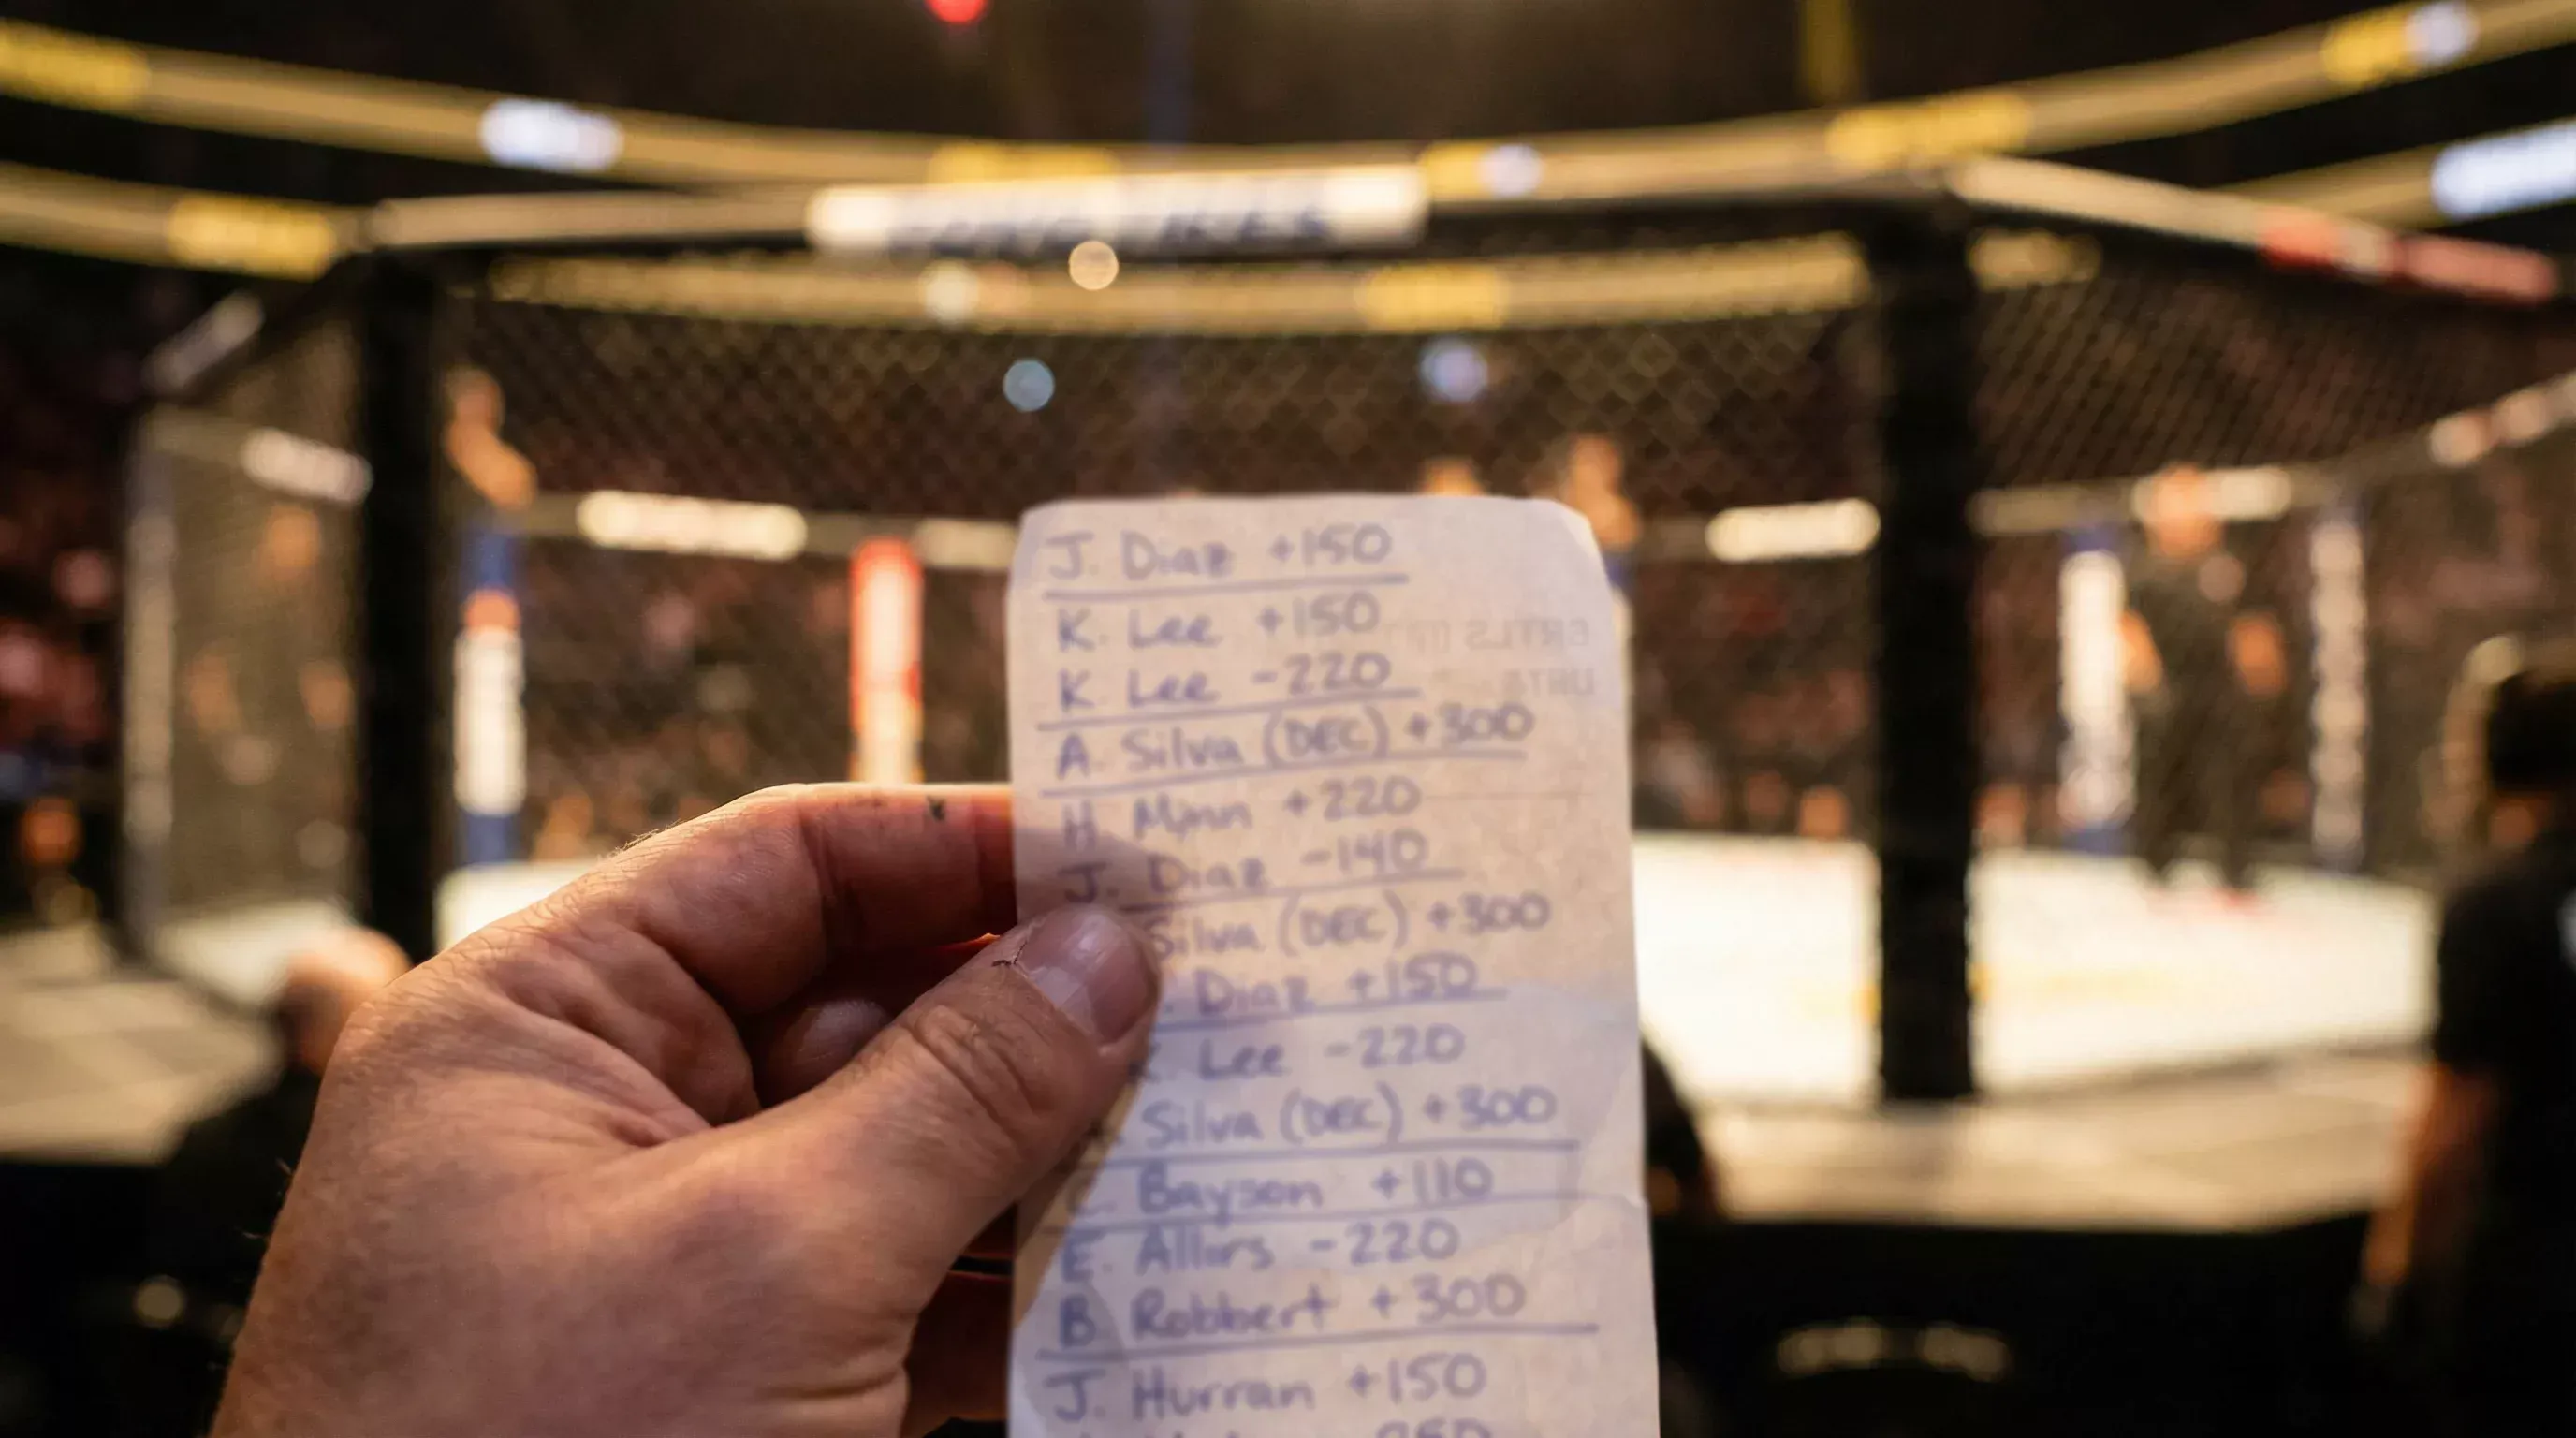 J. Diaz +150
K. Lee +150
K. Lee -220
A. Silva (DEC) +300
H. Minn +220
J. Diaz -140
Silva (DEC) +300
. Diaz +150
Lee -220
Silva (DEC) +300
Bayson +110
E. Allirs -220
B. Robbert +300
J. Hurran +150